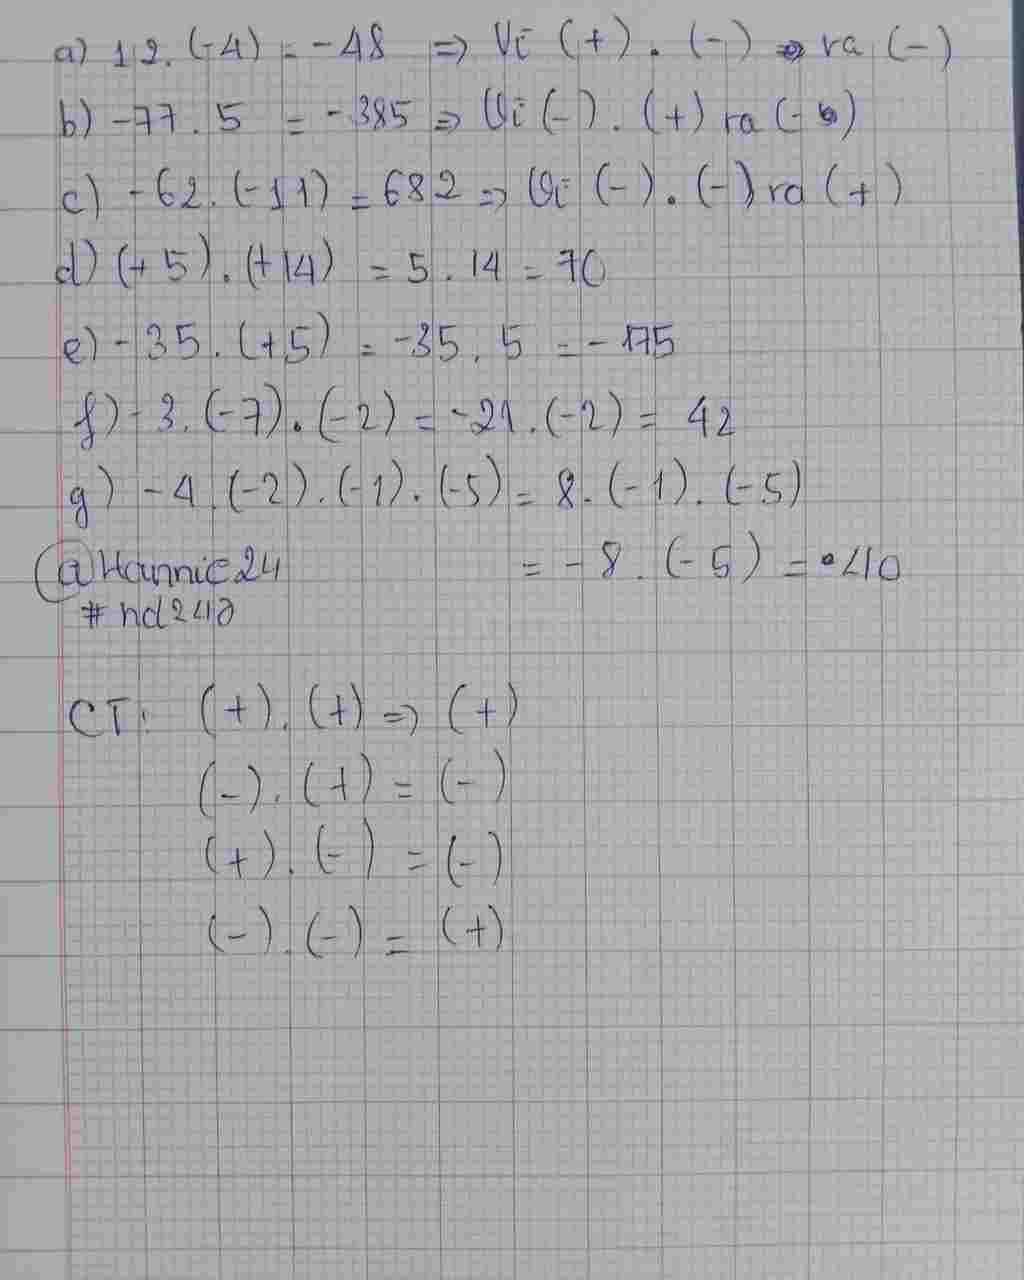 a) 12. (-4) = -48 => Vì (+) . (-) ra (-)
b) -77 . 5 = -385 => Vì (-) . (+) ra (-)
c) -62. (-11) = 682 => Vì (-) . (-) ra (+)
d) (+5) . (+14) = 5 . 14 = 70
e) -35. (+5) = -35 . 5 = -175
f) -3. (-7) . (-2) = -21 . (-2) = 42
g) -4 . (-2) . (-1) . (-5) = 8 . (-1) . (-5)
@Hannie24 = -8 . (-5) = 40
CT: (+) . (+) => (+)
(-) . (+) = (-)
(+) . (-) = (-)
(-) . (-) = (+)